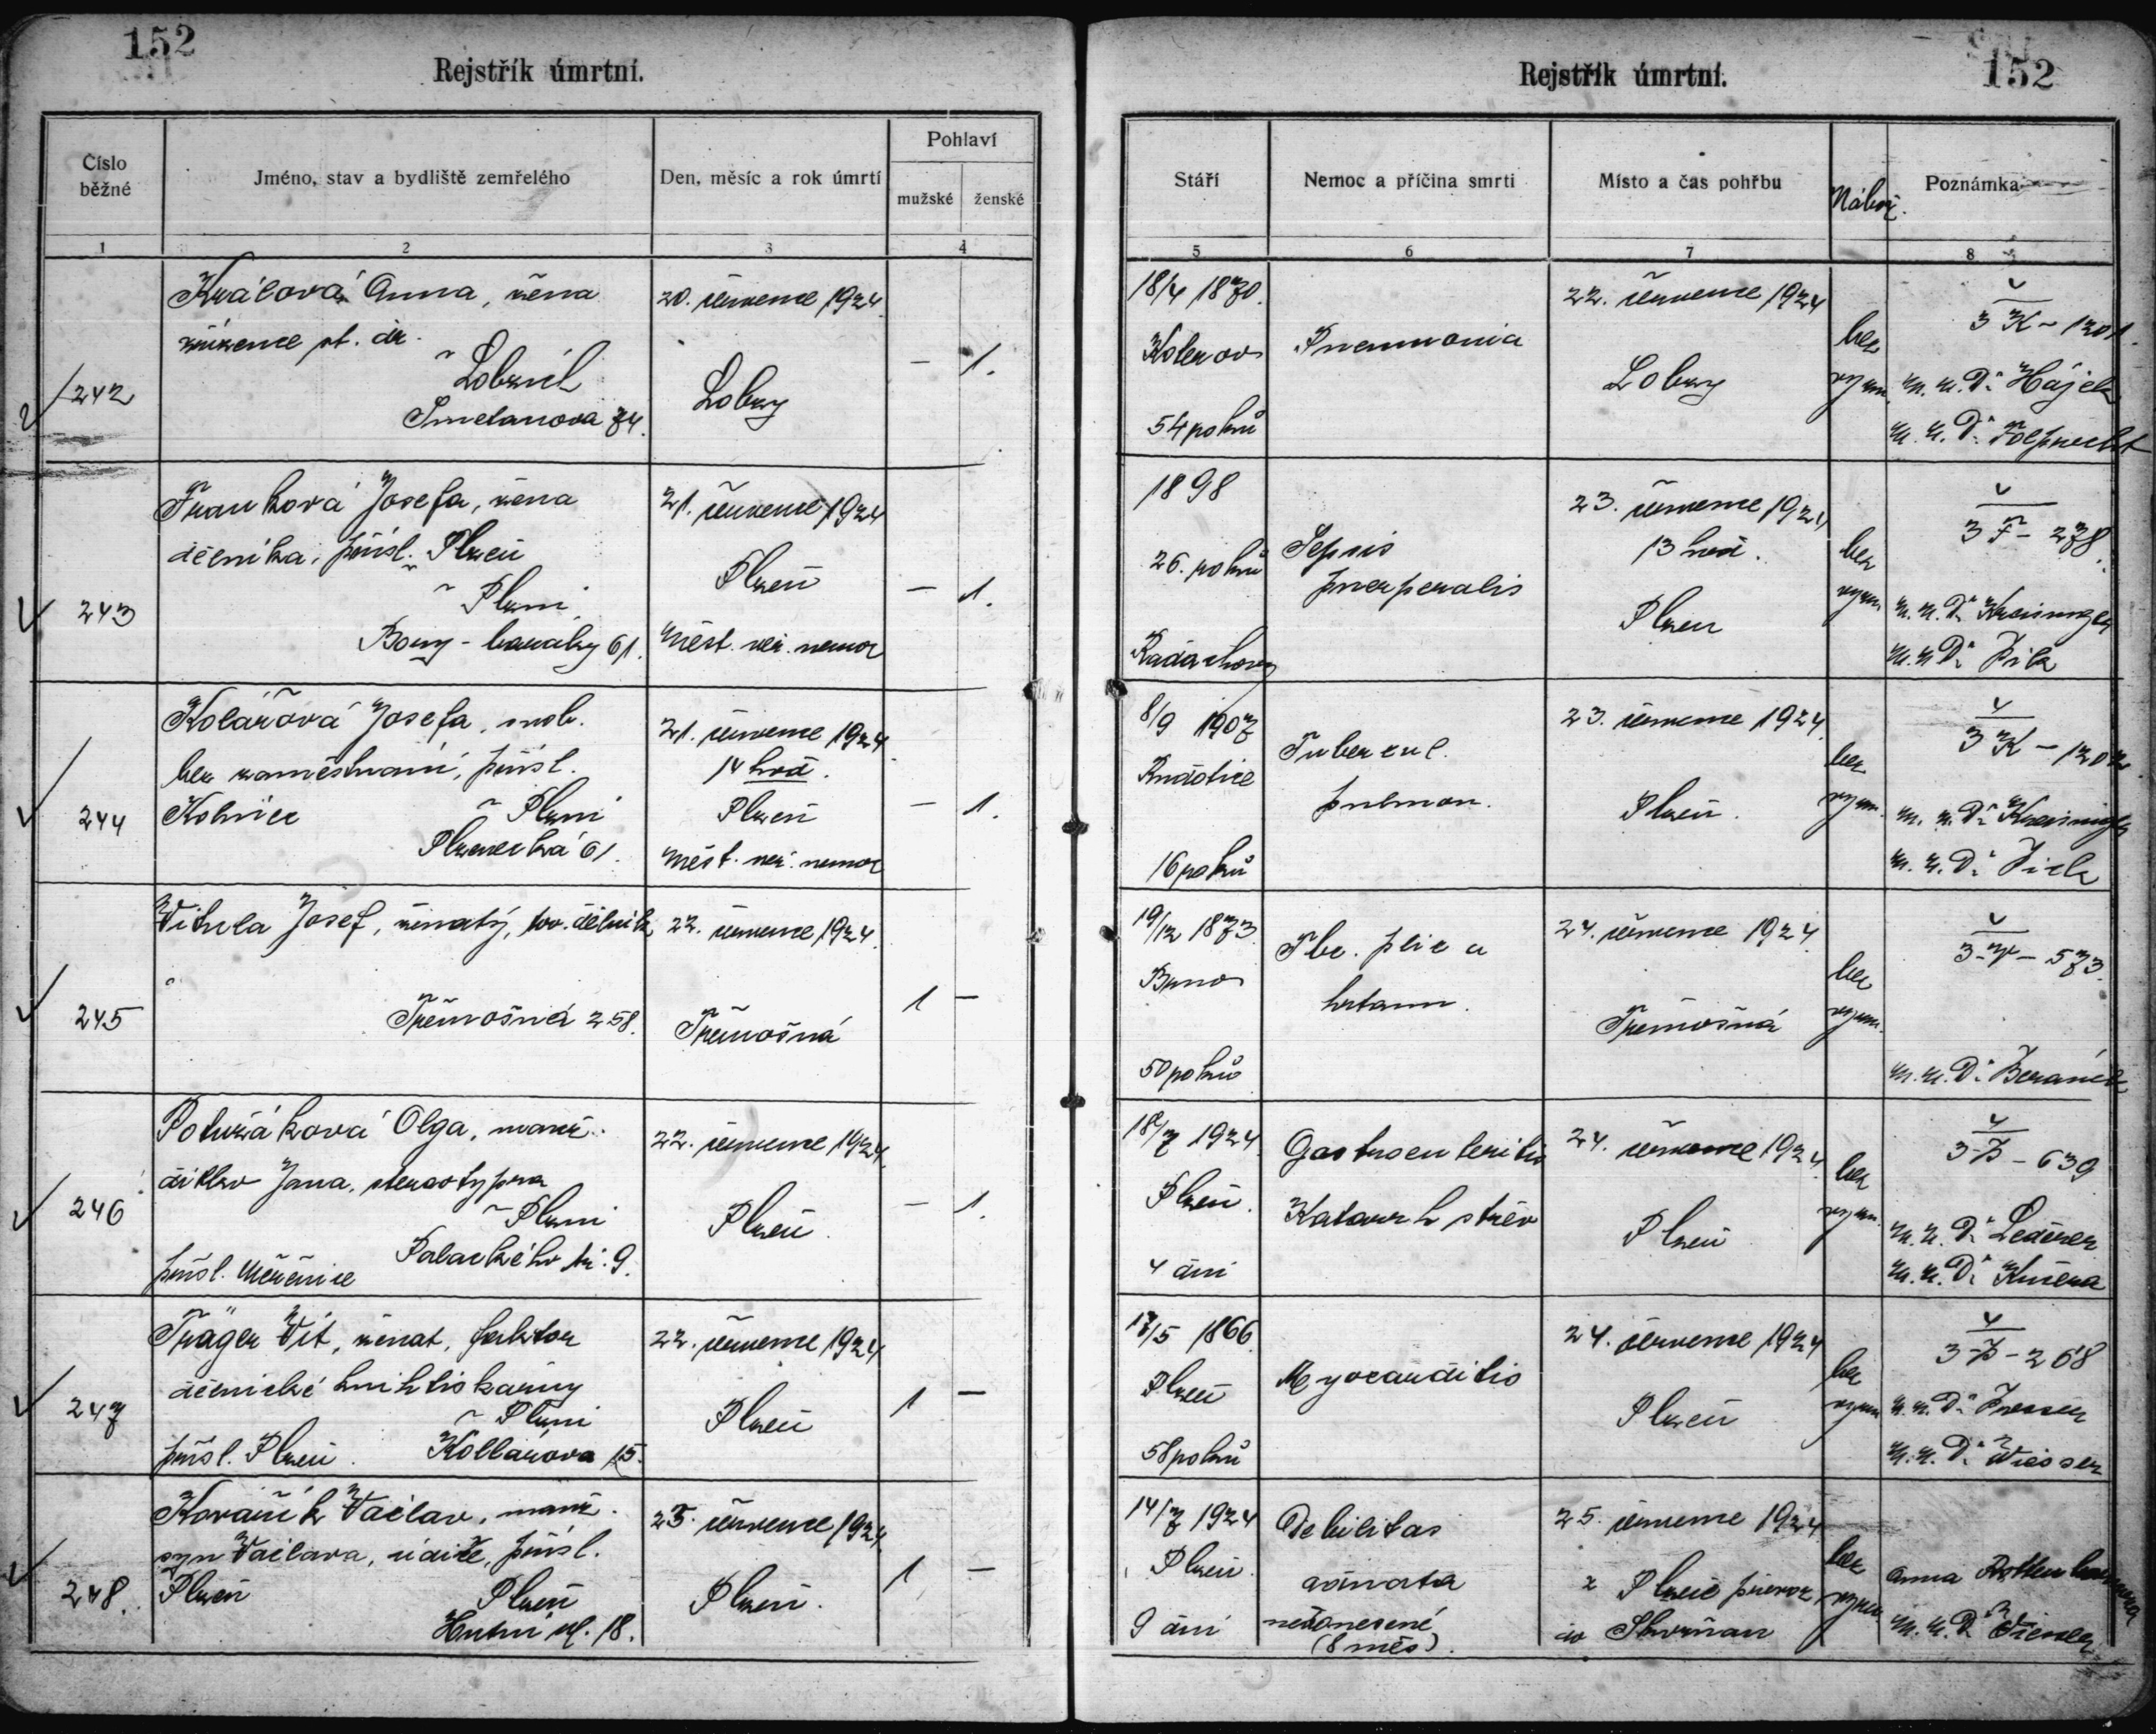 152
Rejstřík úmrtní.
Číslo běžné
Jméno, stav a bydliště zemřelého
Den, měsíc a rok úmrtí
Pohlaví
mužské
ženské
1
2
3
4
242
Králová Anna, žena
zřízence st. dr.
v Lobzích
Smetanova 74.
20. července 1924
Lobzy
— 1.
243
Franková Josefa, žena
dělníka, přísl. Plzeň
v Plzni
Bory - baráky 61.
21. července 1924
Plzeň
Měst. veř. nemoc
— 1.
244
Kolářová Josefa, svob.
bez zaměstnání, přísl.
v Plzni
Plzenecká 61.
21. července 1924
14 hod.
Plzeň
Měst. veř. nemoc
— 1.
245
Vitula Josef, ženatý, tov. dělník
Třemošná 258.
22. července 1924
Třemošná
1 —
246
Potužáková Olga, manž.
dítko Jana, stereotypra
v Plzni
Palackého tř. 9.
přísl.
22. července 1924
Plzeň
— 1.
247
Träger Vít, ženat, faktor
dělnické knihtiskárny
v Plzni
přísl. Plzeň. Kollárova 15.
22. července 1924
Plzeň
1 —
248.
Kovařík Václav, manž.
syn Václava, řidiče, přísl.
Plzeň Plzeň
Hutní ul. 18.
23. července 1924
Plzeň.
1 —
152
Rejstřík úmrtní.
Stáří
Nemoc a příčina smrti
Místo a čas pohřbu
Nábož.
Poznámka
5
6
7
8
18/4 1870.
Koterov
54 roků
Pneumonia
22. července 1924
Lobzy
bez
vyzn.
3 K - 1201.
M. U. Dr Hájek
M. U. Dr
1898
26. roků
Sepsis
puerperalis
23. července 1924
13 hod.
Plzeň
bez
vyzn.
3 F - 278.
M. U. Dr
M. U. Dr
8/9 1907
16 roků
Tubercul.
pulmon.
23. července 1924
Plzeň.
bez
vyzn.
3 K - 1202.
M. U. Dr
M. U. Dr
19/12 1873
Brno
50 roků
Tbc. plic a
hrtanu.
24. července 1924
Třemošná
bez
vyzn.
3 V - 573.
M. U. Dr Beránek
18/7 1924
Plzeň.
4 dní
Gastroenteritis
Katarrh střev
24. července 1924
Plzeň
bez
vyzn.
3 P - 639
M. U. Dr Lederer
M. U. Dr Kučera
17/5 1866
Plzeň
58 roků
Myocarditis
24. července 1924
Plzeň
bez
vyzn
M. U. Dr
M. U. Dr Wiesser
14/7 1924
Plzeň.
9 dní
Debilitas
adnata
nedonesené
(8 měs).
25. července 1924
z Plzně převoz.
do Skvrňan
bez
vyzn.
Anna
M. U. Dr